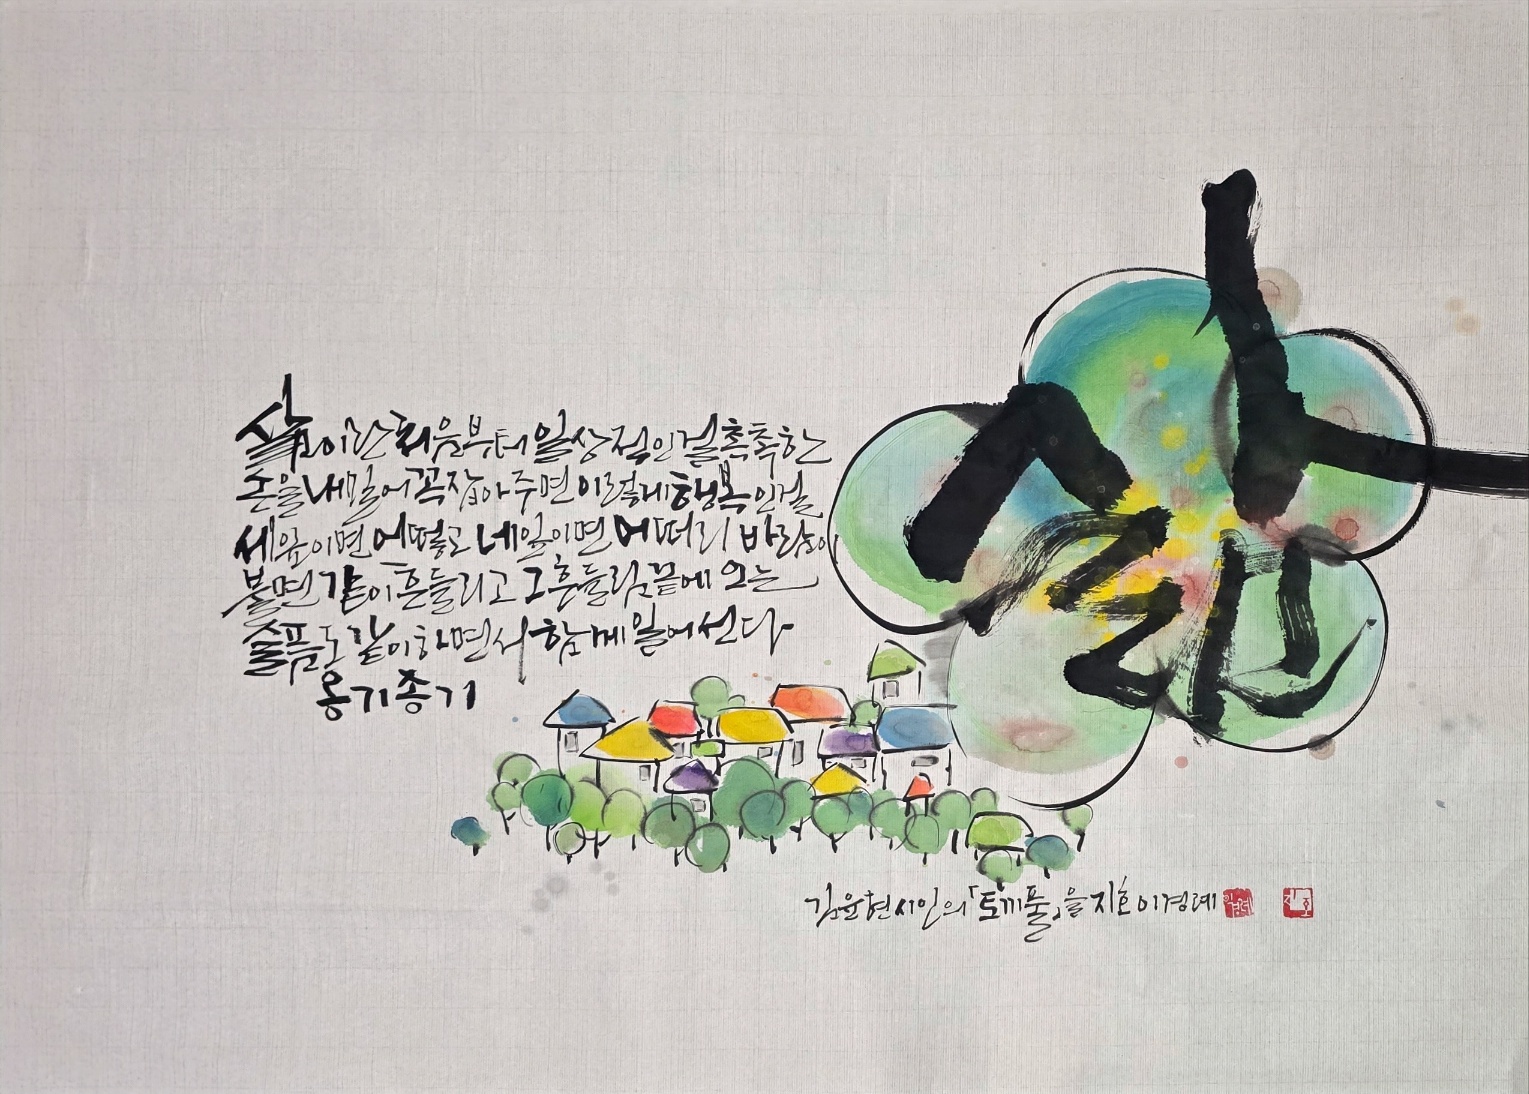 삶이란 처음부터 일상적인걸 촉촉한
손을 내밀어 꼭 잡아주면 이렇게 행복인걸
세잎이면 어떻고 네잎이면 어떠리 바람이
불면 같이 흔들리고 그 흔들림 끝에 오는
슬픔도 같이하면서 함께 일어선다
옹기종기
삶
김윤현시인의「토끼풀」을 지효 이경례